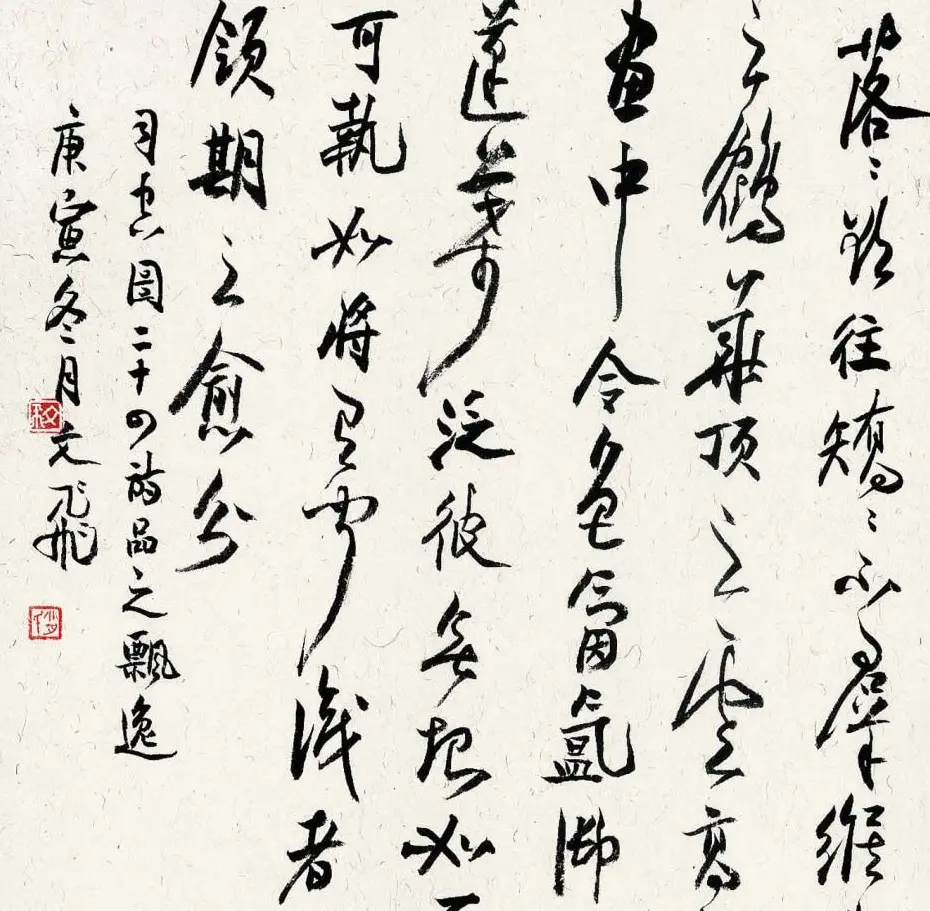 落〻欲往矯〻不羣緱
之鶴華頂之雲高
畫中令色氤氳御
蓬葉泛彼無垠如
可執如將有聞識者
領期之愈分
司空圖二十四詩品之飄逸
庚寅冬月文飛